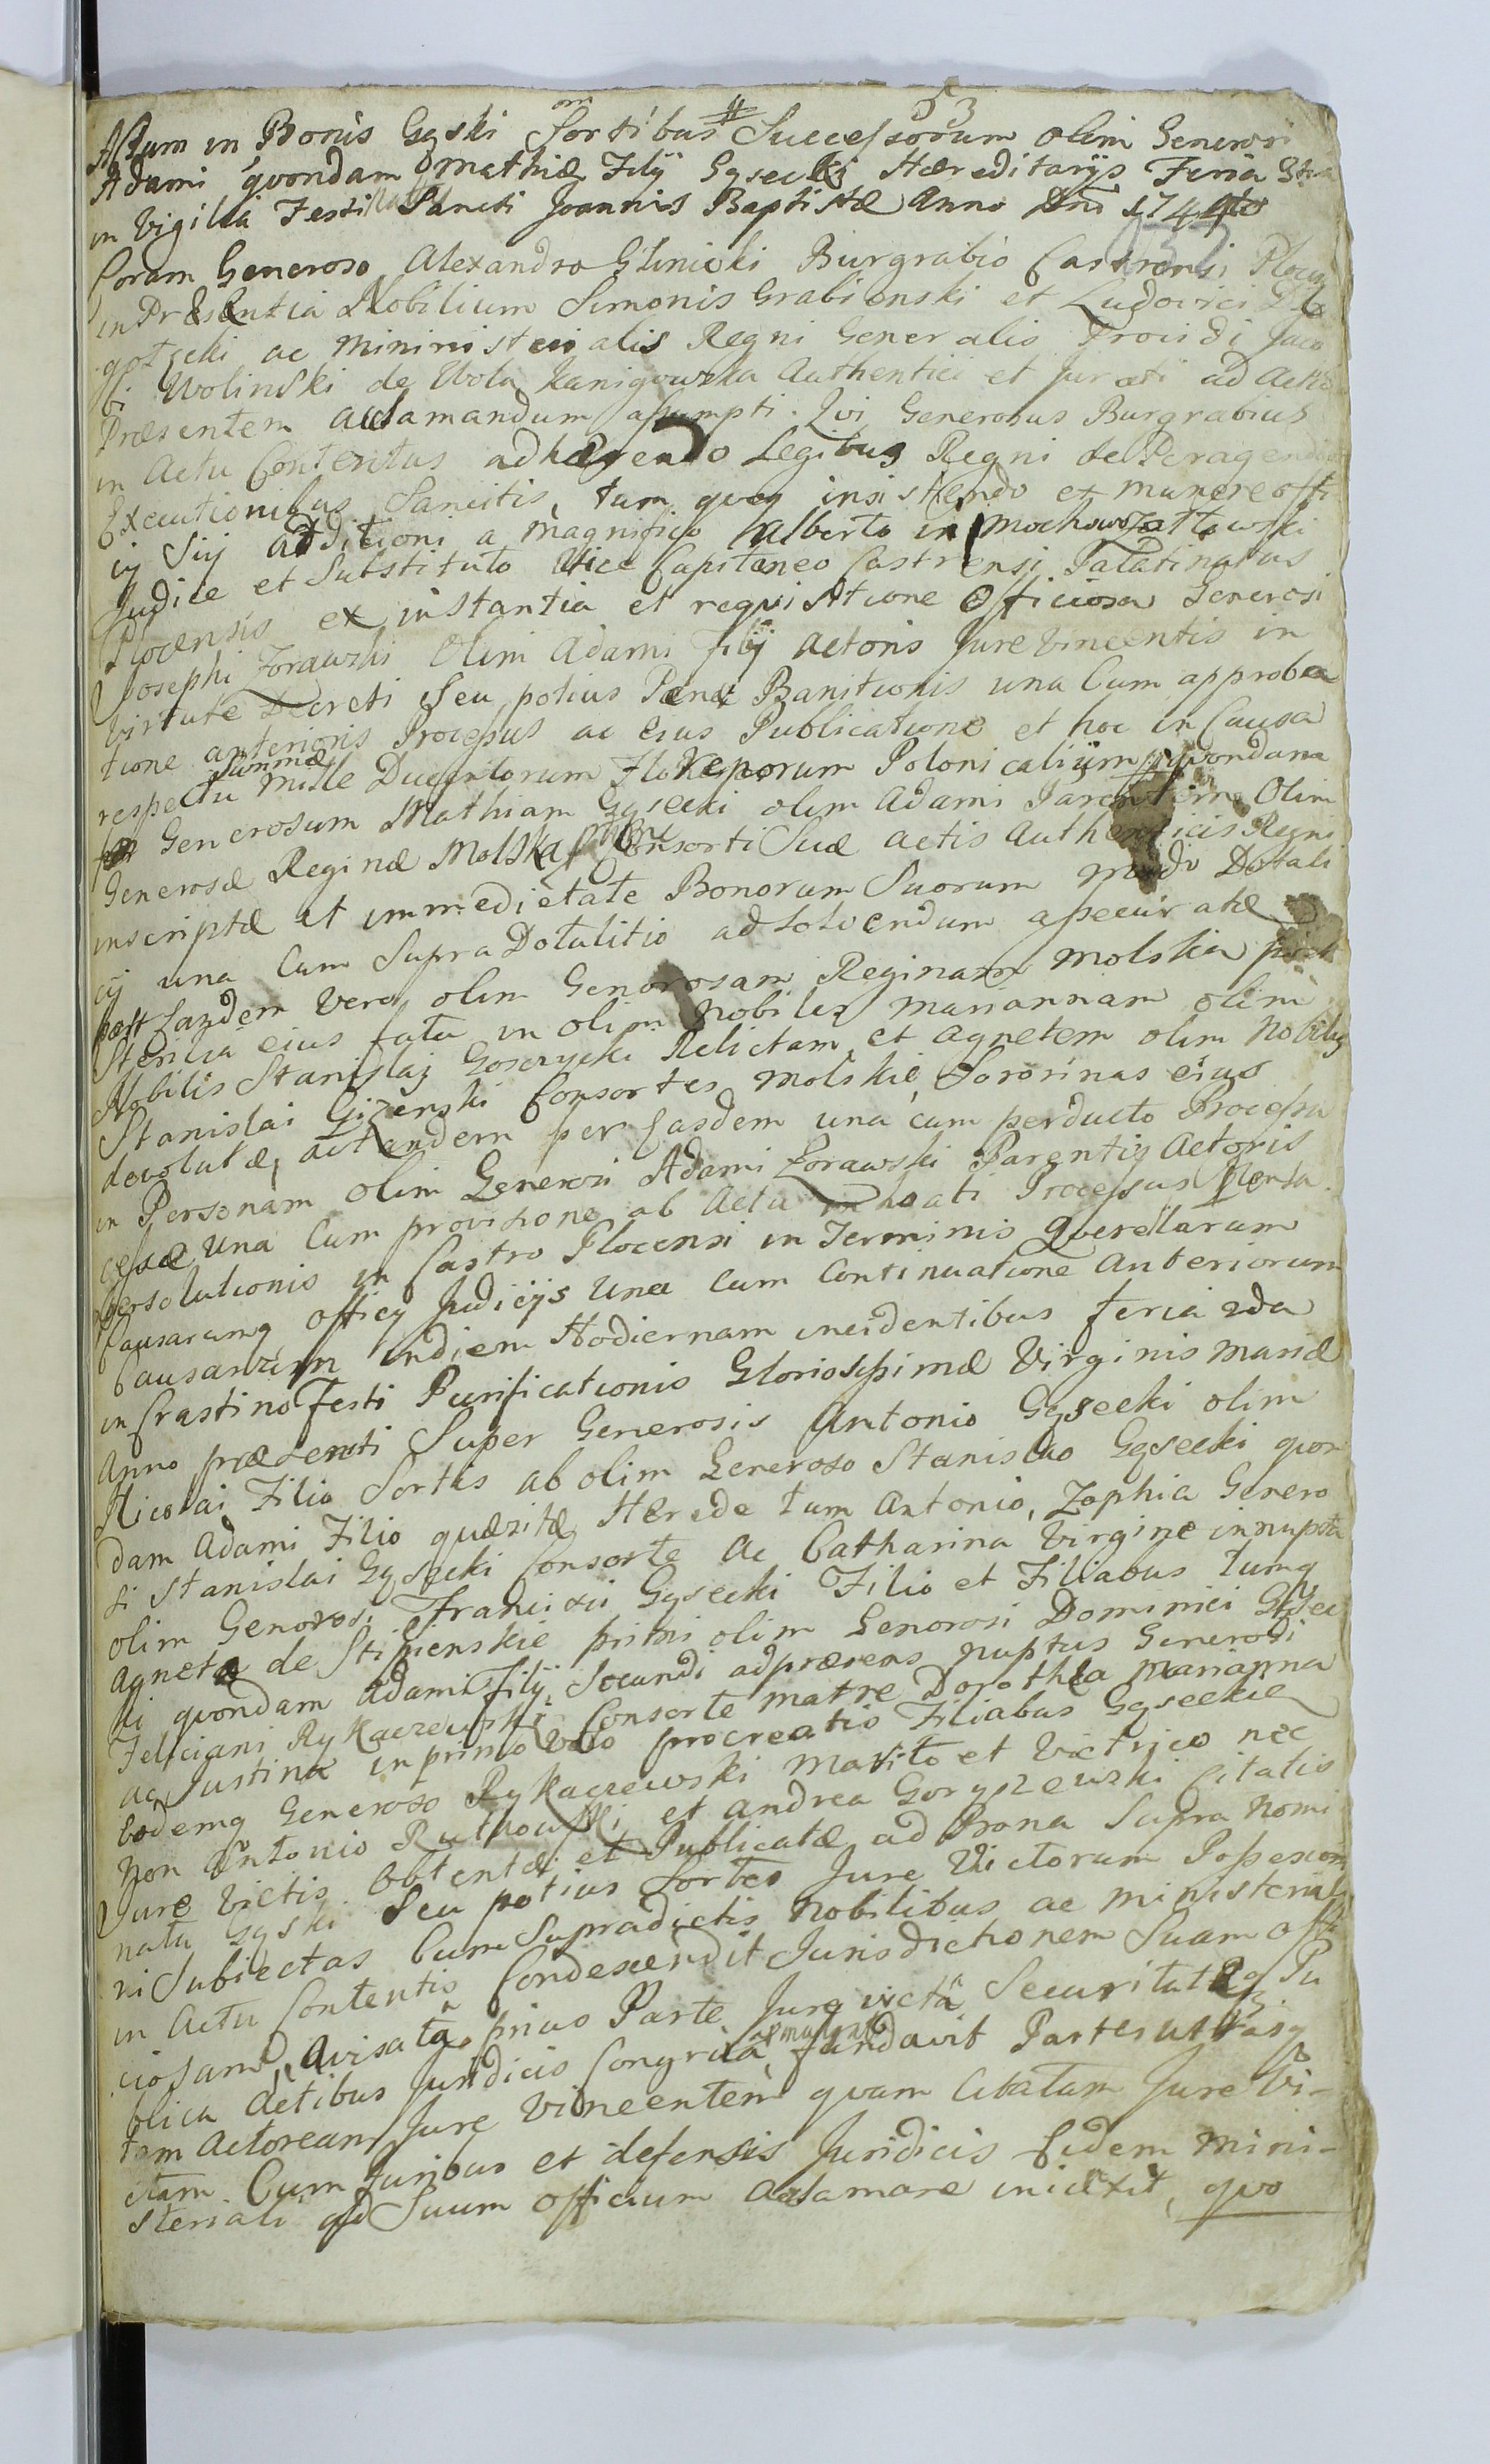 53
Actum in Bonis Gęski Sortibus Successorum olim Generosi
Adami quondam Mathiæ Filij Gęsecki Hæreditarijs Feria 3tia
in Vigilia Festi Sancti Joannis Baptistæ Anno Dni 1744to
Coram Generoso Alexandro Glinicki Burgrabio Castrensi Plocen
in Præsentia Nobilium Simonis Grabienski et Ludovici
ac Mininisterialis Regni Generalis Providi Jaco
bi Wolinski de Wola Kanigowska Authentici et Jurati ad Actum
Præsentem acclamandum assumpti. Qui Generosus Burgrabius
in Actu Contentus adhærendo Legibus Regni de Peragendis
Executionibus Sancitis, tum quoq insistendo ex munere offi
cij Sui additioni a Magnifico Alberto in Mochowo
Judice et Substituto Vice Capitaneo Castrensi Palatinatus
Plocensis ex instantia et requisitione Officiosa Generosi
Josephi Zorawski Olim Adami Filij Actoris Jure Vincentis in
Virtute Decreti Seu potius Pænæ Banitionis una Cum approba
tione anterioris Processus ac eius Publicatione et hoc in Causa
respectu Summæ Mille Ducentorum Florenorum Polonicalium quondam
per Generosum Mathiam Gęsecki olim Adami Olim
Generosæ Reginæ Molska Consorti Suæ actis Authenticis Regni
inscriptæ et immedietate Bonorum Suorum modo Dotali
cij una Cum Supra Dotalitio ad Solvendum assecuratæ
post Eandem Vero olim Generosam Reginam Molska post
Sterilia eius fata in olim Nobiles Mariannam olim
Nobilis Stanislai Goscrycki Relictam et Agnetem olim Nobilis
Stanislai Gizenski Consortes Molskie Sororinas eius
devolutæ, ac tandem per Easdem una cum perducto Processu
in Personam olim Generosi Adami Zorawski Parentis Actoris
cessæ Una Cum provisione ab Actu inchoati Processus
persolutionis in Castro Plocensi in Terminis Querellarum
Causarumq officij Judicijs Una Cum Continuatione Anteriorum
Causarum in diem Hodiernam incidentibus feria 2da
in Crastino Festi Purificationis Gloriosissimæ Virginis Mariæ
Anno præsenti Super Generosis Antonio Gęsecki olim
Nicolai Filio Sortis ab olim Generoso Stanislao Gęsecki quon
dam Adami Filio quæsitæ Herede tum Antonio, Zophia Genero
si Stanislai Gęsecki Consorte ac Catharina Virgine innupta
olim Generosi Francisci Gęsecki Filio et Filiabus tumq
Agneta de Stipienskie primi olim Generosi Dominici Gęsec
ki quondam Adami Filij, Secundi ad præsens nuptus Generosi
Feliciani Rykaczewski Consorte Matre Dorothea Marianna
ac Justina in primo Voto procreatis Filiabus Gęseckie
Eodemq Generoso Rykaczewski Marito et Victrico nec
non Antonio Rutkowski et Andrea Goryszewski Citatis
Jure Victis obtentæ et Publicatæ ad Bona Supra nomi
nata Gęski Seu potius Sortes Jure Victorum Possessioni
Subiectas Cum Supradictis Nobilibus ac Ministeriali
in Actu Contentis Condescendit Jurisdictionem Suam offi
ciosam, Avisata prius Parte Jure victâ Securitateq Pu
blica Actibus Juridicis Congrua fundavit Partes utrasq
tam Actoream Jure Vincentem quam Citatam Jure Vi-
ctam Cum Juribus et defensis Juridicis Eidem Mini-
steriali ad Suum officium Adclamare iniunxit, quo